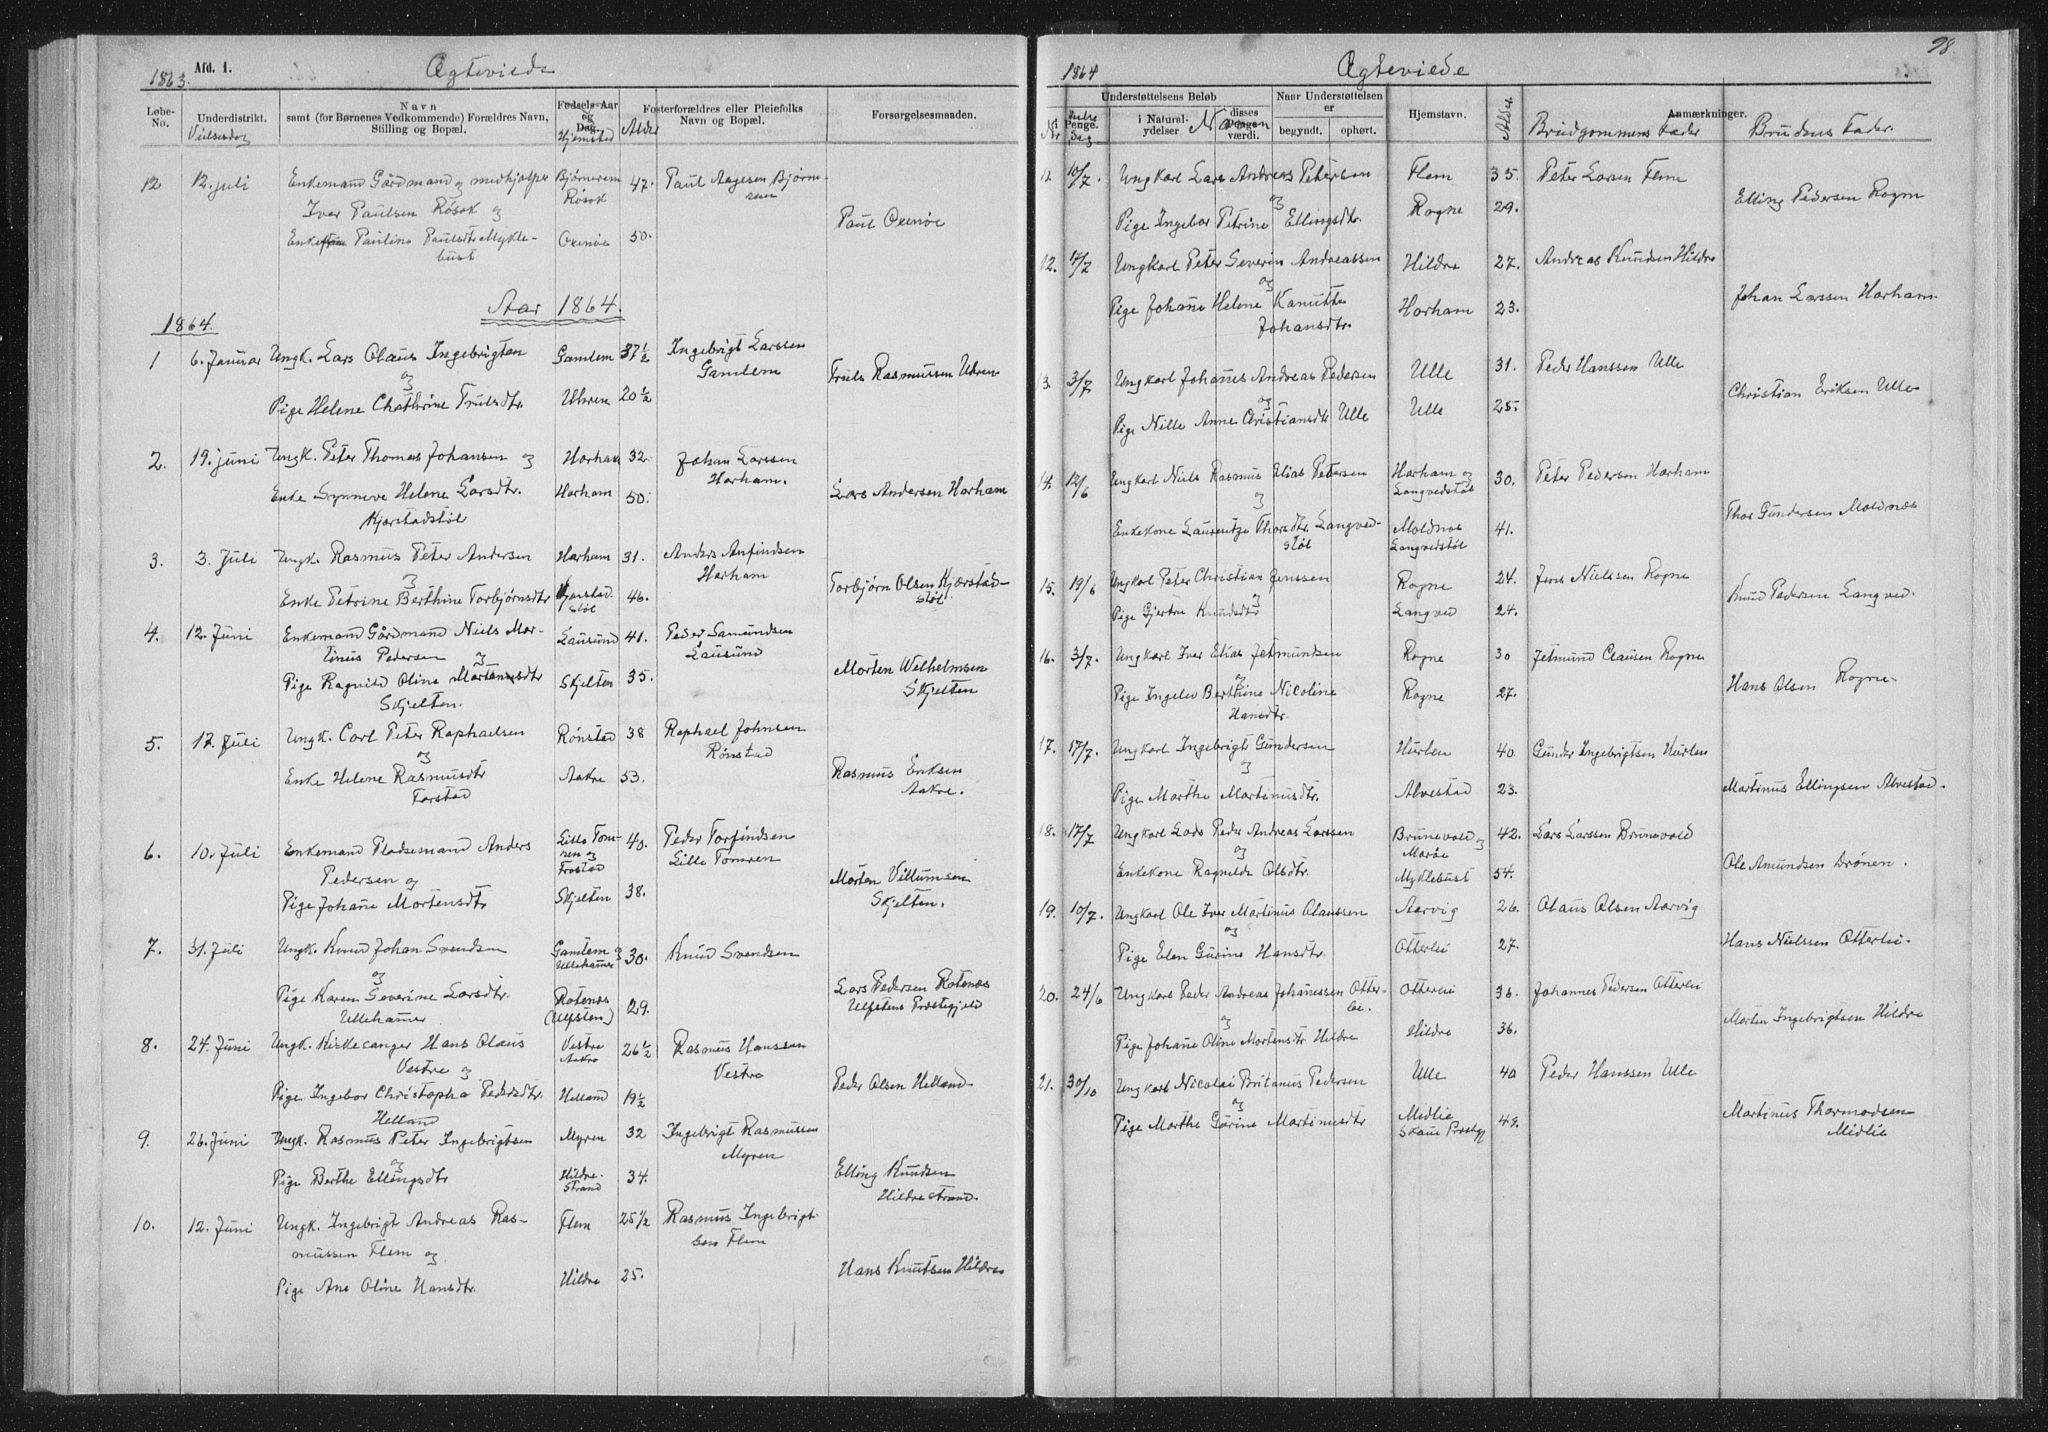 1863. Afd. 1. Ægteviede
Løbe-No. Underdistrikt. Navn samt (for Børnenes Vedkommende) Forældres Navn, Stilling og Bopæl. Fødsels-Aar og Dag. Fosterforældres eller Pleiefolks Navn og Bopæl. Forsørgelsesmaaden.
Vielsesdag Hjemsted Alder
12 12. juli Enkemand Gårdmand og medhjælper Bjørnerem 47. Paul Aagesen Bjørn-
Iver Paulsen Røsok og Røsok rem
Enke Pauline Paulsdtr Mykle- Oxenøe 50. Paul Oxenøe
bust
Aar 1864.
1864.
1 6. Januar Ungk. Lars Olaus Ingebrigten Gamlem 37 1/2 Ingebrigt Larssen
og Gamlem
Pige Helene Chathrine Trulsdtr. Uhren 20 1/2 Truls Rasmussen Uhren
2. 19. juni Ungk. Peter Thomas Johansen og Harham 32. Johan Larssen
Harham.
Enke Synneve Helene Larsdtr. Harham 50. Lars Andersen Harham
Kjærstadstøl
3. 3. Juli Ungk. Rasmus Peter Andersen Harham 31. Anders Anfindsen
og Harham
Enke Petrine Berthine Torbjørnsdtr Kjærstad- 46. Torbjørn Olsen Kjærstad-
støl støl
4. 12. Juni Enkemand Gårdmand Niels Mar- Lausund 41. Peder Samundsen
tinus Pedersen og Lausund
Pige Ragnild Oline Martenusdtr Skjelten 35. Morten Welhelmsen
Skjelten. Skjelten
5. 17. Juli Ungk. Carl Peter Raphaelsen Rønstad 38 Raphael Johnsen
og Rønstad
Enke Helene Rasmusdtr Aakre 53. Rasmus Eriksen
Farstad Aakre.
6. 10. Juli Enkemand Pladsemand Anders Lille Tom- 40. Peder Torfindsen
Pedersen og ren og Frostad Lille Tomren
Pige Johane Mortensdtr Skjelten 38. Morten Villumsen
Skjelten.
7. 31. Juli Ungk. Knud Johan Svendsen Gamlem og 30. Knud Svendsen
og Ullehamer
Pige Karen Severine Larsdtr. Rotenes 29. Lars Pedersen Rotenes
Ullehamer (Ulfsten) Ulfstens Prestegjeld
8. 24. Juni Ungk. Kirkesanger Hans Olaus Vestre 26 1/2 Rasmus Hanssen
Vestre og Aakre Vestre
Pige Ingebor Christopha Pedersdtr. Helland 19 1/2 Peder Olsen Helland
Helland
9. 26. Juni Ungk. Rasmus Peter Ingebrigtsen Myren 32 Ingebrigt Rasmussen
og Myren
Pige Berthe Ellingsdtr Hildre- 34. Elling Knudsen
strand Hildrestrand.
10. 12. Juni Ungk. Ingebrigt Andreas Ras- Flem 25 1/2 Rasmus Ingebrigt-
mussen Flem og sen Flem
Pige Ane Oline Hansdtr. Hildre 25. Hans Knutsen Hildre
1864 Ægteviede 98.
Understøttelsens Beløb Naar Understøttelsen er Hjemstavn. Anmærkninger.
i Penge. i Naturalydelser disses Pengeværdi. begyndt. ophørt.
Nr Dag Navn Alder Brudgommens Fader Brudens Fader.
12 10/7. Ungkarl Lars Andreas Petersen Flem 35. Peter Larsen Flem
og
Pige Ingebor Petrine Ellingsdtr. Rogne 29. Elling Pedersen Rogn
12. 17/7 Ungkarl Peter Severin Andreassen Hildre 27. Andreas Knudsen Hildre
og
Pige Johane Helene Kanutte Harham 23. Johan Larssen Harham.
Johansdtr.
13. 3/7 Ungkarl Johanes Andreas Pedersen Ulle 31. Peder Hanssen Ulle
og
Pige Nille Anne Christiansdtr Ulle Ulle 25. Christian Eriksen Ulle
14. 12/6 Ungkarl Niels Rasmus Elias Petersen Harham og 30. Peter Pedersen Harham
og Langvedstøl
Enkekone Laurentze Thorsdtr. Langved- Moldnes 41. Thor Gundersen Moldnæs
støl Langvedstøl
15. 19/6 Ungkarl Peter Christian Jenssen Rogne 24. Jens Nielssen Rogne
og
Pige Gjertre Knudsdtr Langved 24. Knud Pedersen Langved.
16. 3/7. Ungkarl Iver Elias Jetmundsen Rogne 30 Jetmund Clausen Rogne
og
Pige Ingelev Berthine Nicoline Rogne 27. Hans Olsen Rogne
Hansdtr.
17. 17/7. Ungkarl Ingebrigt Gundersen Hurlen 40 Gunder Ingebrigtsen Hurlen
og
Pige Marthe Martinusdtr. Alvestad 23. Martinus Ellingsen Alvestad.
18. 17/7 Ungkarl Lads Peder Andreas Larssen Brunevold og 42. Lars Larssen Brunevold
og Marøe
Enkekone Ragnilde Olsdtr. Myklebust 54. Ole Amundsen Drønen.
19. 10/7. Ungkarl Ole Iver Martinus Olaussen Aarvig 26. Olaus Olsen Aarvig
og
Pige Elen Gurine Hansdtr. Otterlei 27. Hans Nielssen Otterlei.
20. 24/6 Ungkars Peder Andreas Johanessen Otter- Otterlei 36. Johannes Pedersen Otterlei
og lei.
Pige Johane Oline Mortensdtr Hildre Hildre 36. Morten Ingebrigtsen Hildre
21. 30/10 Ungkarl Nicolai Britanus Pedersen Ulle 40 Peder Hanssen Ulle
og
Pige Marthe Gurine Martinusdtr Midlie 49. Martinus Thormodsen
Skaue Prestgj Midlie